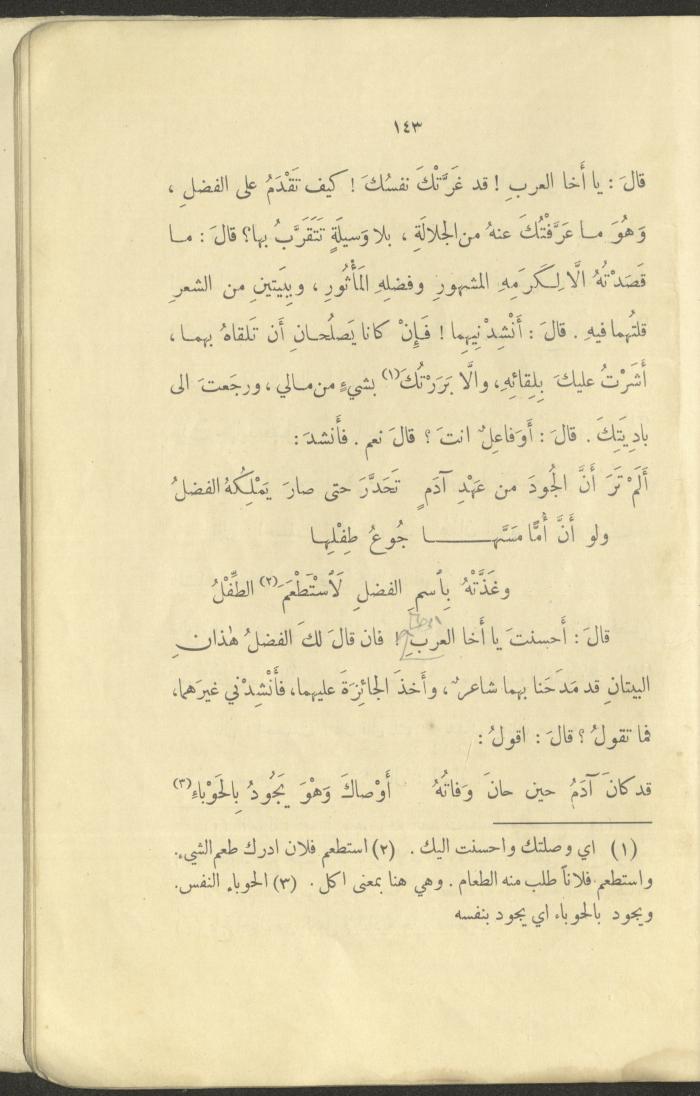 ١٤٣
قالَ : يا أَخا العربِ ! قد غَرَّتْكَ نفسُكَ ! كيف تَقْدَمُ على الفضلِ ،
وَهُوَ ما عَرَّفْتُكَ عنهُ من الجلالَةِ ، بلا وَسيلَةٍ تَتَقَرَّبُ بها؟ قالَ : ما
قَصَدْتُهُ الَّا لِكَرَمِهِ المشهورِ وفضلِهِ المَأْثُورِ ، وبِبَيتينِ من الشعرِ
قلتُهما فيهِ . قالَ : أَنْشِدْنِيهِما ! فَإِنْ كانا يَصلُحانِ أَن تَلقاهُ بهما ،
أَشَرْتُ عليكَ بِلِقائِهِ ، والَّا بَرَرْتُكَ (١) بشيءٍ من مالي ، ورجَعتَ الى
بادِيَتِكَ . قالَ : أَوَفاعِلٌ انتَ ؟ قالَ نعم . فأَنشدَ :
أَلَمْ تَرَ أَنَّ الجُودَ من عَهْدِ آدَمٍ تَحَدَّرَ حتى صارَ يَمْلِكُهُ الفضلُ
ولو أَنَّ أُمًّا مَسَّها جُوعُ طِفْلِها
وغَذَّتْهُ بِٱسمِ الفضلِ لَاسْتَطْعَمَ (٢) الطِّفْلُ
قالَ : أَحسنتَ يا أَخا العربِ ! فان قالَ لكَ الفضلُ هٰذانِ
البيتانِ قد مَدَحَنا بهما شاعرٌ ، وأَخذَ الجائِزَةَ عليهما، فأَنْشِدْني غيرَهما،
فما تقولُ ؟ قالَ : اقولُ :
قد كانَ آدَمُ حين حانَ وَفاتُهُ أَوْصاكَ وَهْوَ يَجُودُ بِالحَوْباءِ (٣)
(١) اي وصلتك واحسنت اليك . (٢) استطعم فلان ادرك طعم الشيء .
واستطعم فلاناً طلب منه الطعام . وهي هنا بمعنى اكل . (٣) الحوباء النفس .
ويجود بالحوباء اي يجود بنفسه